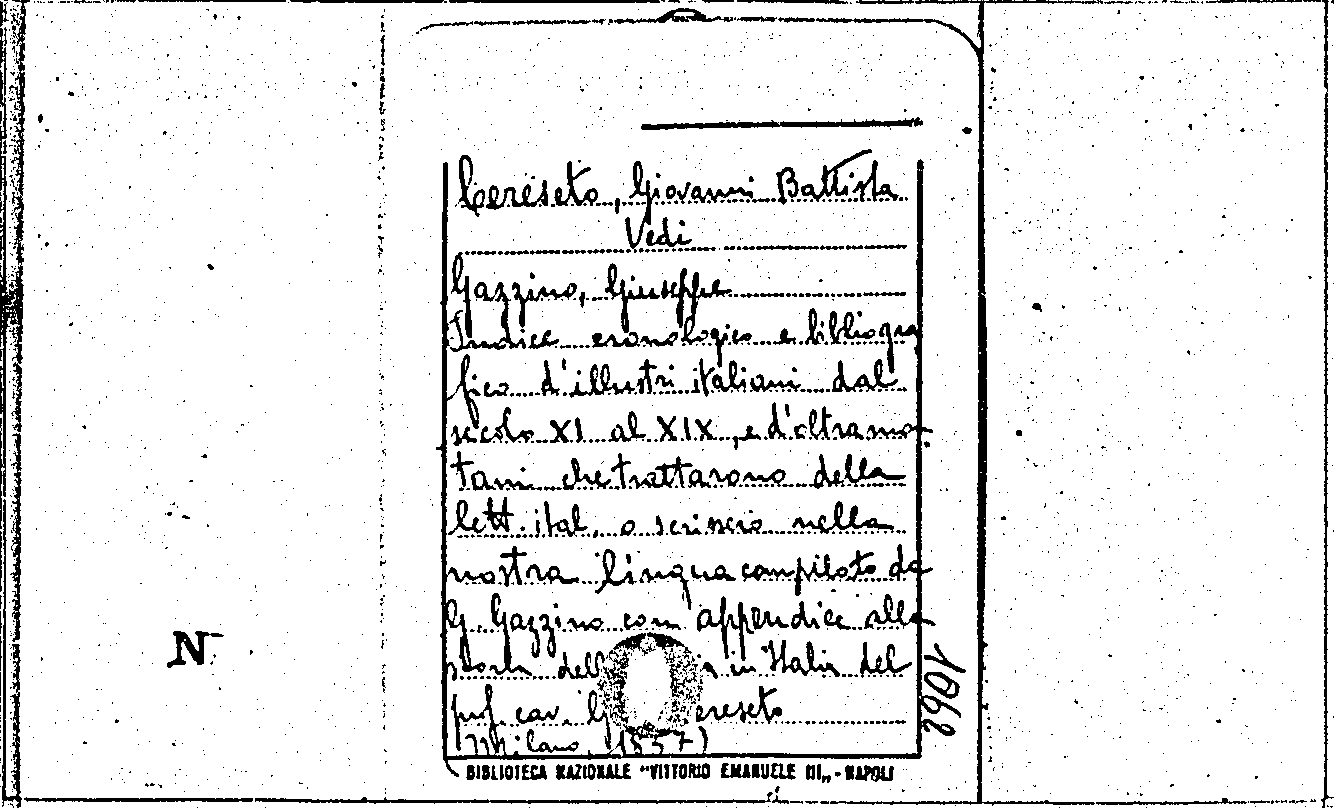 Cereseto, Giovanni Battista
Vedi
Gazzino, Giuseppe
Indice cronologico e bibliogra
fico d'illustri italiani dal
secolo XI al XIX, e d'oltramon
tani che trattarono della
lett. ital. o scrissero nella
nostra lingua compilato da
G. Gazzino con appendice alla
storia della in Italia del
prof. cav. G. Cereseto
(Milano, 1857)
1068
N
BIBLIOTECA NAZIONALE "VITTORIO EMANUELE III„ - NAPOLI